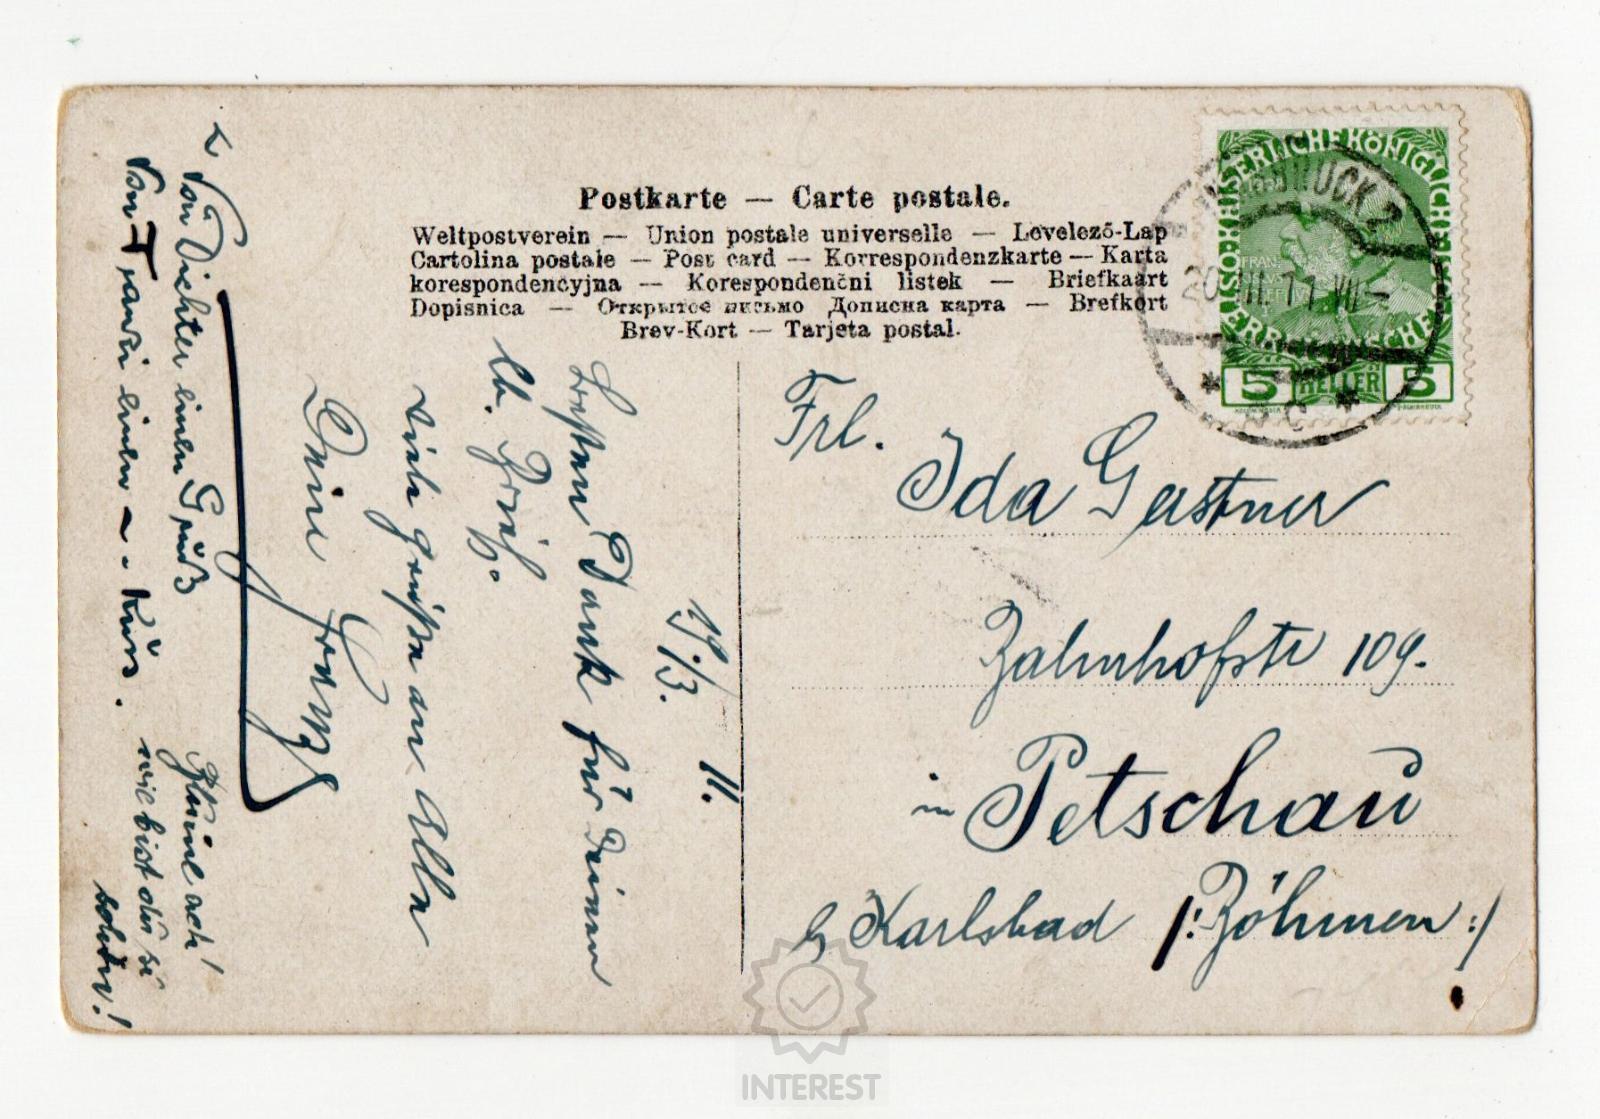 Postkarte — Carte postale.
Weltpostverein — Union postale universelle — Levelező-Lap
Cartolina postale — Post card — Korrespondenzkarte — Karta
korespondencyjna — Korespondenční listek — Briefkaart
Dopisnica — Открытое письмо Дописна карта — Brefkort
Brev-Kort — Tarjeta postal.
KAISERLICHE KÖNIGLICHE
ÖSTERREICHISCHE POST
5 HELLER 5
INNSBRUCK 2
Frl.
Ida Gastner
Bahnhofstr 109.
in Petschau
b/ Karlsbad /: Böhmen :/
19./3. 11.
Besten Dank für Deinen
lb. Brief.
Viele Grüße an Alle
Dein Franz
Von Dichter einen Gruß
Von einen - Kuss.
Kleine ach!
wie bist du so
INTEREST